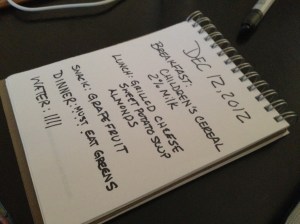 DEC 12, 2012
BREAKFAST:
CHILDREN'S CEREAL
2% Milk
LUNCH: GRILLED CHEESE
SWEET POTATO SOUP
ALMONDS
SNACK: GRAPEFRUIT
DINNER: MUST EAT GREENS
WATER: ||||